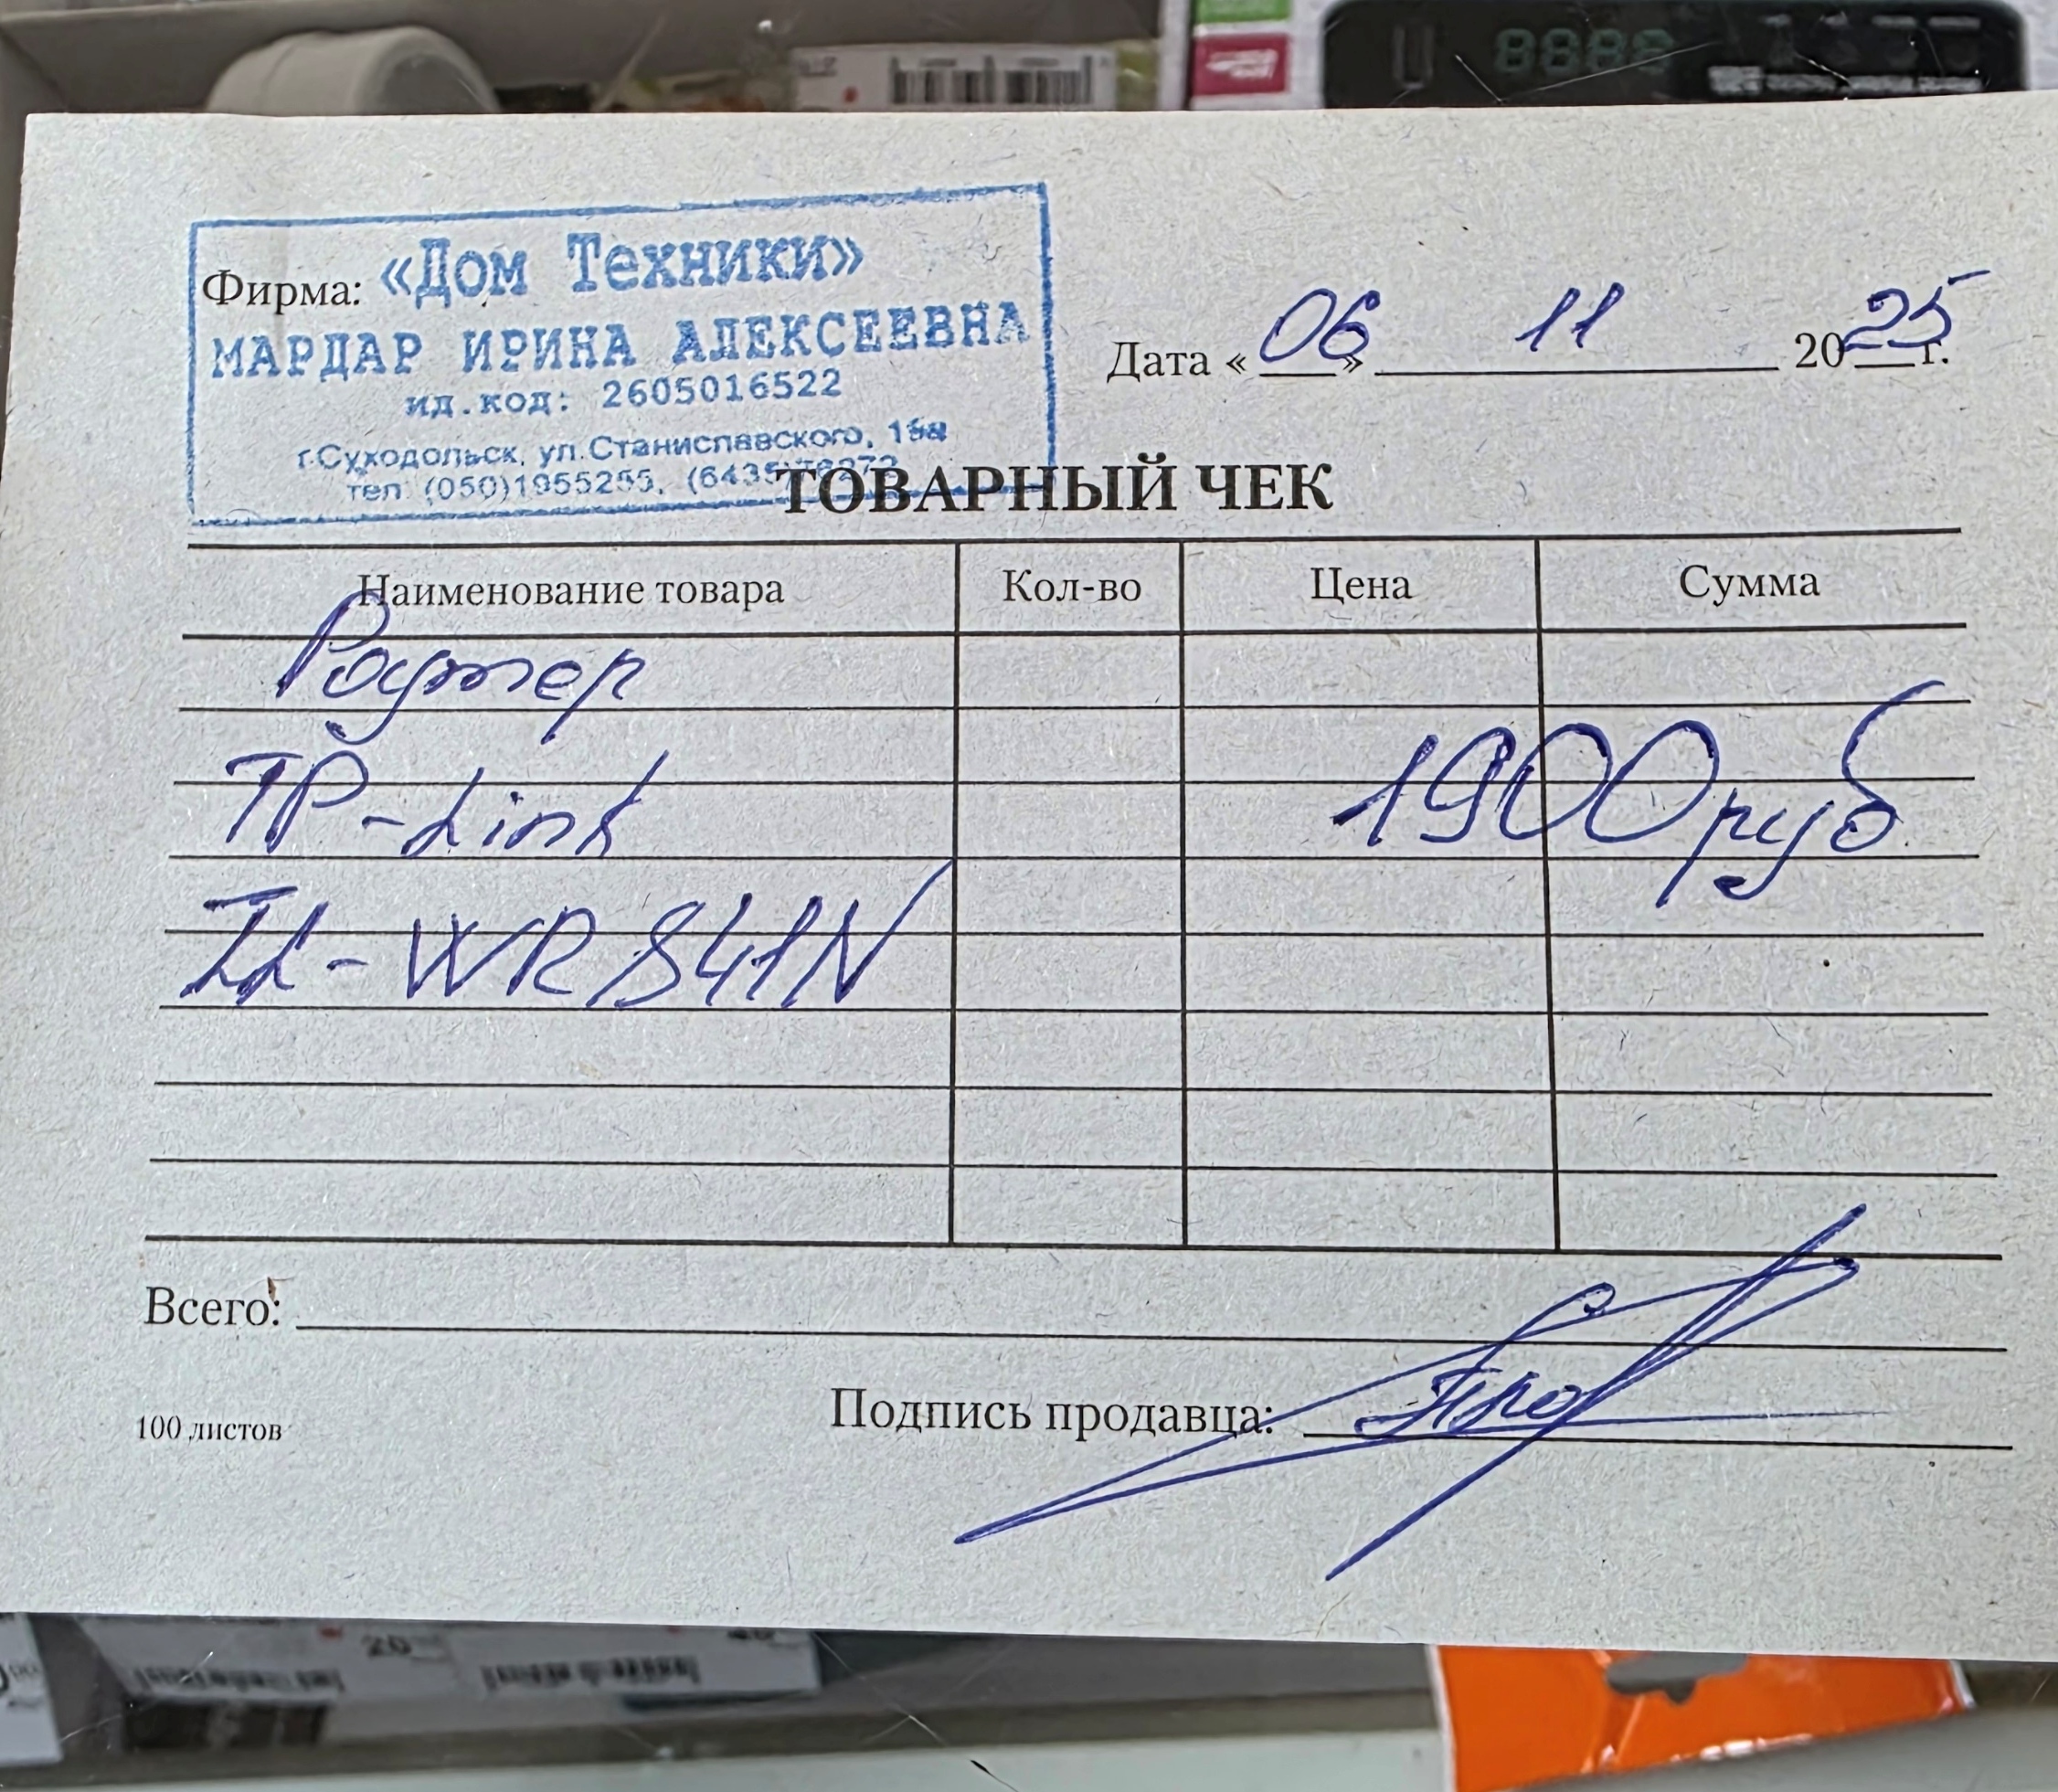 Фирма: «Дом Техники»
МАРДАР ИРИНА АЛЕКСЕЕВНА
ид.код: 2605016522
г.Суходольск, ул.Станиславского,
тел. (050)1955255,
Дата «06» 11 2025 г.
ТОВАРНЫЙ ЧЕК
Наименование товара Кол-во Цена Сумма
Роутер
TP-Link 1900 руб
TL-WR841N
Всего:
Подпись продавца:
100 листов